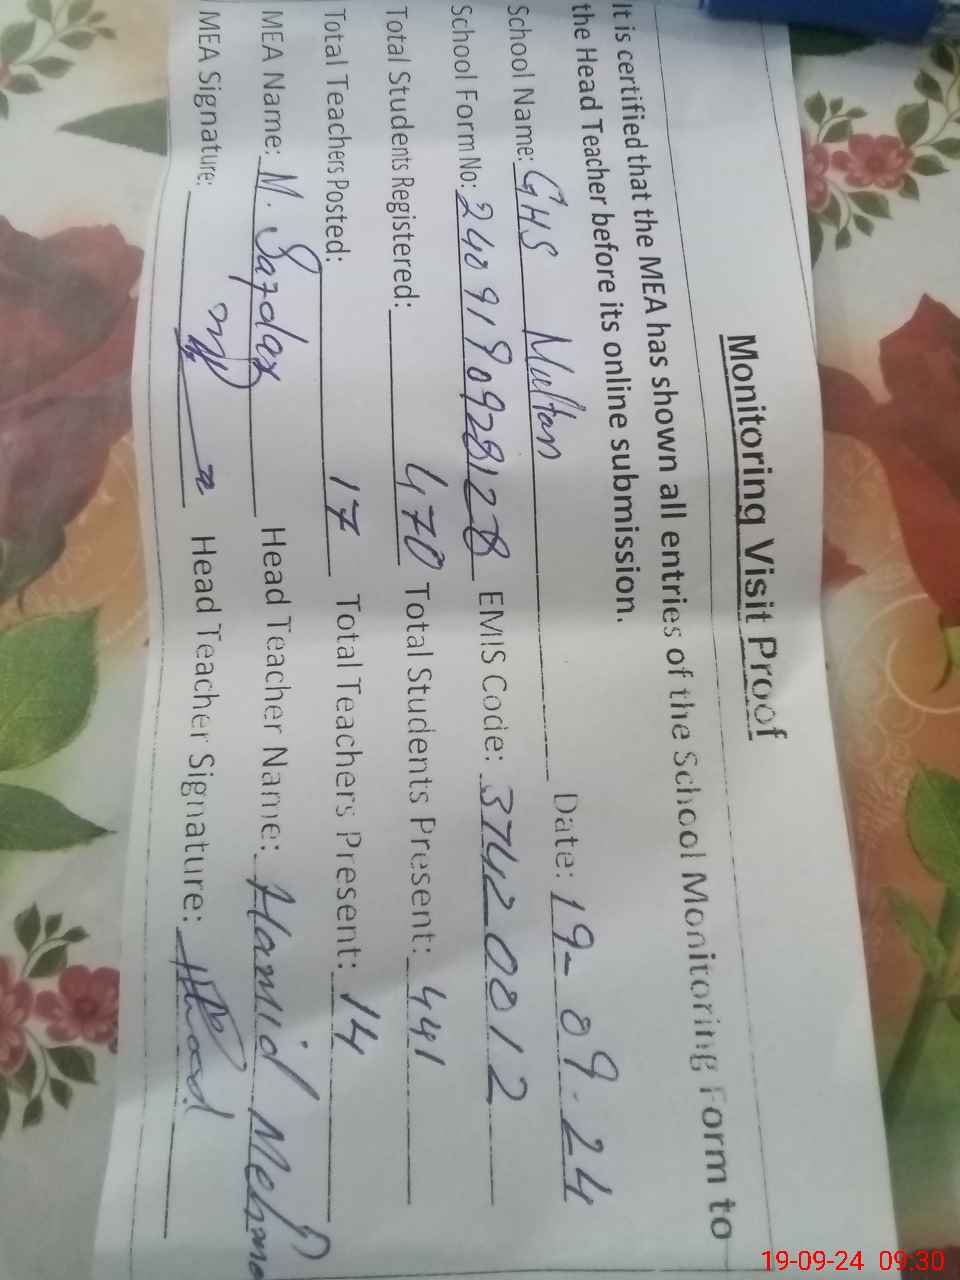 Monitoring Visit Proof
It is certified that the MEA has shown all entries of the School Monitoring Form to
the Head Teacher before its online submission.
School Name: GHS Multan Date: 19-09-24
School Form No: 2409190928128 EMIS Code: 37420012
Total Students Registered: 470 Total Students Present: 441
Total Teachers Posted: 17 Total Teachers Present: 14
MEA Name: M. Safdar Head Teacher Name: Hamid Mehmood
MEA Signature: Head Teacher Signature:
19-09-24 09:30